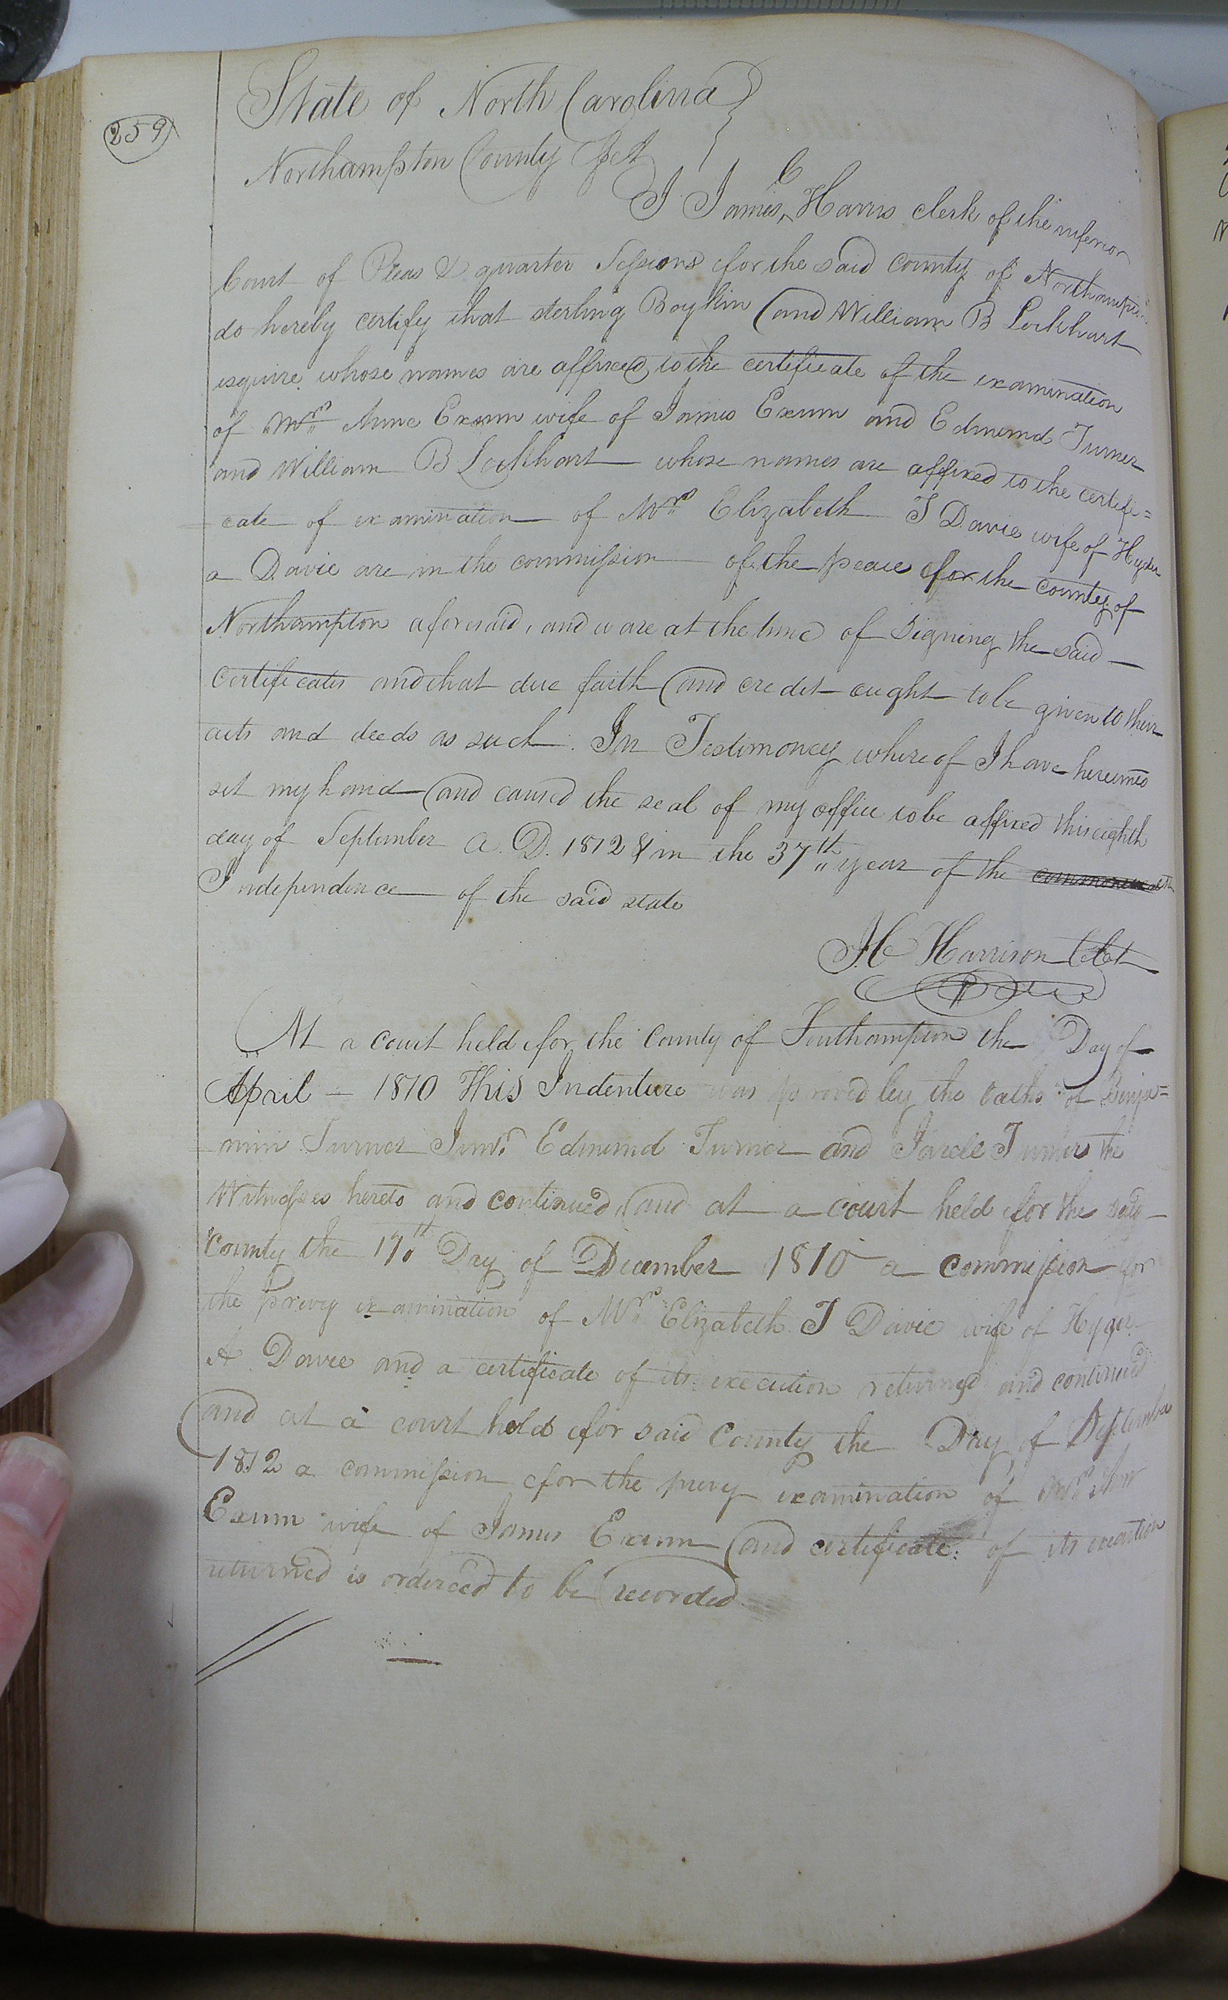 259
State of North Carolina
Northampton County Sct
I James C Harris clerk of the inferior
Court of Pleas & quarter Sessions for the said county of Northampton
do hereby certify that sterling Boykin and William B Lockhart
esquire whose names are affixed to the certificate of the examination
of Mrs Anne Exum wife of James Exum and Edmund Turner
and William B Lockhart whose names are affixed to the certifi=
cate of examination of Mrs Elizabeth J Davie wife of Hyder
a Davie are in the commission of the peace for the county of
Northampton aforesaid, and ware at the time of Signing the said
Certificates and that due faith and credit ought to be given to their
acts and deeds as such. In Testimoney where of I have hereunto
set my hand and caused the seal of my office to be affixed this eighth
day of September A. D. 1812 & in the 37th year of the
Independence of the said state
Harrison
At a court held for the County of Southampton the Day of
April - 1810 This Indenture was proved by the oaths of Benja=
min Turner Junr. Edmund Turner and Turner the
Witnesses hereto and continued, and at a court held for the said
County the 17th Day of December 1810 a commission for
the privy examination of Mrs Elizabeth J Davie wife of Hyder
A Davie and a certificate of its execution returned and continued
and at a court held for said County the Day of September
1812 a commission for the privy examination of Mrs Ann
Exum wife of James Exum and certificate of its execution
returned is ordered to be recorded